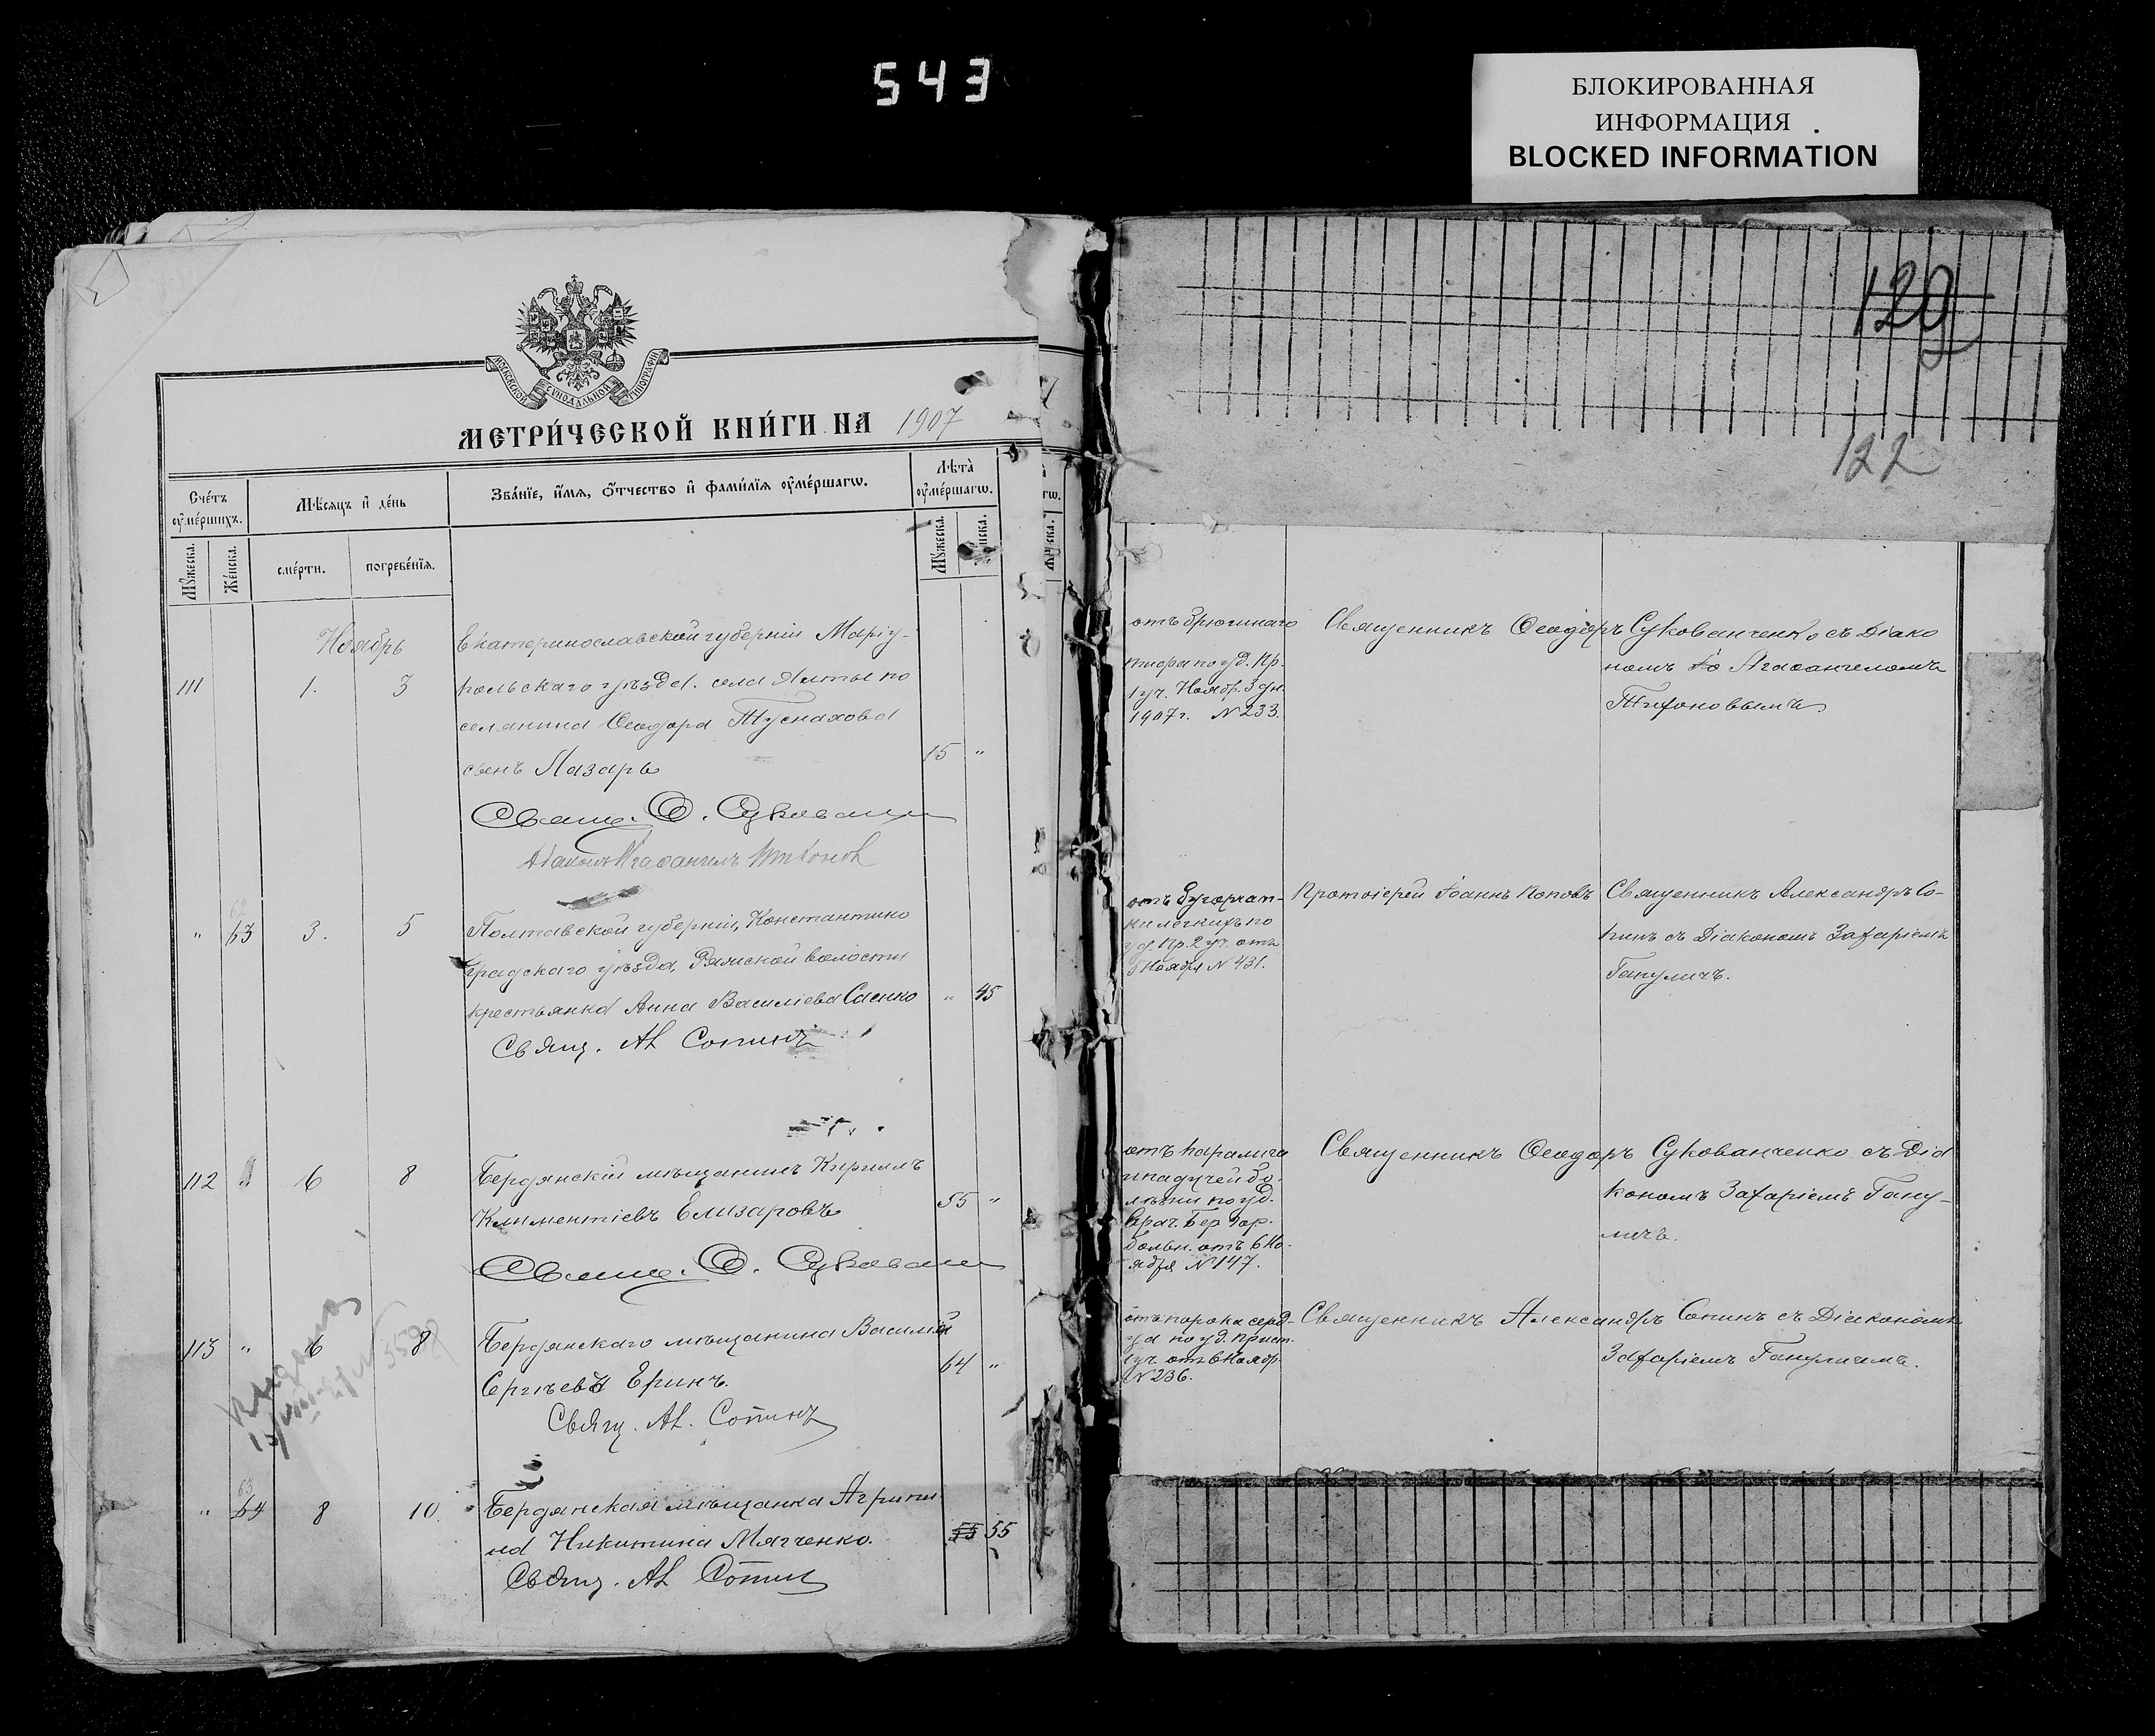 543
БЛОКИРОВАННАЯ
ИНФОРМАЦИЯ
BLOCKED INFORMATION
129
122
МОСКОВСКОЙ СѴНОДАЛЬНОЙ ТИПОГРАФІИ
МЕТРИ́ЧЕСКОЙ КНИ́ГИ НА 1907
Сче́тъ ᲂу҆ме́ршихъ.
Мѣ́сяцъ и҆ де́нь
Зва́нїе, и҆́мя, ѻ҆́тчество и҆ фами́лїя ᲂу҆ме́ршагѡ.
Лѣта̀ ᲂу҆ме́ршагѡ.
Мꙋ́жеска.
Же́нска.
сме́рти.
погребе́нїя.
Мꙋ́жеска.
Ноябрь
111 1. 3
Екатеринославской губерніи Маріу-
польскаго уѣзда. села Ялты по
селянина Ѳеодора Туснахова
сынъ Лазарь 15 "
Свящ. Ѳ. Сукован
Діаконъ Агаѳангелъ Тихонов
отъ брюшнаго
тифа по уд. Пр.
1 уч. Нояб. 3 дн.
1907 г. N 233.
Священникъ Ѳеодоръ Сукованченко съ Діако
номъ Агаѳангеломъ
Тихоновымъ
62
" 63 3. 5
Полтавской губерніи, Константино
градскаго уѣзда, Ряжской волости
крестьянка Анна Василіева Саенко " 45
Свящ. Ал Сопинъ
отъ бугорчат-
ки легкихъ по
уд. Пр. 2 уч. отъ
5 Ноября N 431.
Протоіерей Іоаннъ Поповъ
Священникъ Александръ Со-
пинъ съ Діакономъ Захаріемъ
Гануличъ.
112 " 6 8
Бердянскій мѣщанинъ Кириллъ
Климентіевъ Елизаровъ 55 "
Свящ. Ѳ. Сукован
отъ паралича
и падучей бо-
лѣзни по уд.
Врач. Бер. Гор.
больн. отъ 6 Но-
ября N 147.
Священникъ Ѳеодоръ Сукованченко съ Діа
кономъ Захаріемъ Гану-
личъ.
113 " 6 8
Бердянскаго мѣщанина Василій
Сергѣевъ Еринъ. 64 "
Свящ. Ал. Сопинъ
отъ порока серд-
ца по уд. Прист.
1 уч. отъ 6 Нояб.
N 236.
Священникъ Александръ Сопинъ съ Діакономъ
Захаріемъ Ганулičемъ.
63
" 64 8 10.
Бердянская мѣщанка Агрипи
на Никитина Мягченко. 55 55
Свящ. Ал Сопин